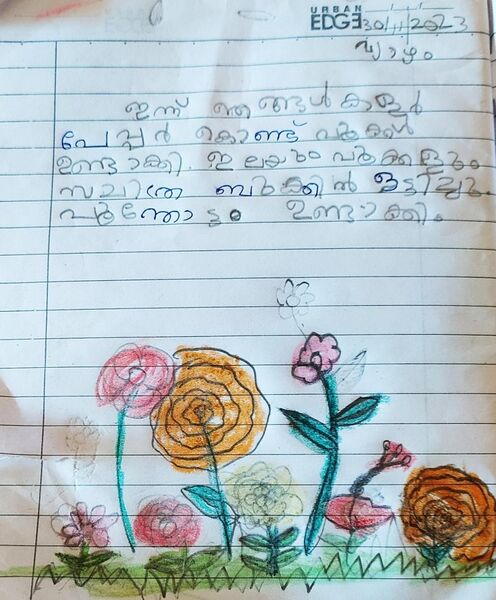 URBAN
EDGE 30/11/2023
വ്യാഴം
ഇന്ന് ഞങ്ങൾ കളർ
പേപ്പർ കൊണ്ട് പൂക്കൾ
ഉണ്ടാക്കി. ഇലയും പൂക്കളും
സചിത്ര ബുക്കിൽ ഒട്ടിച്ചു.
പൂന്തോട്ടം ഉണ്ടാക്കി.